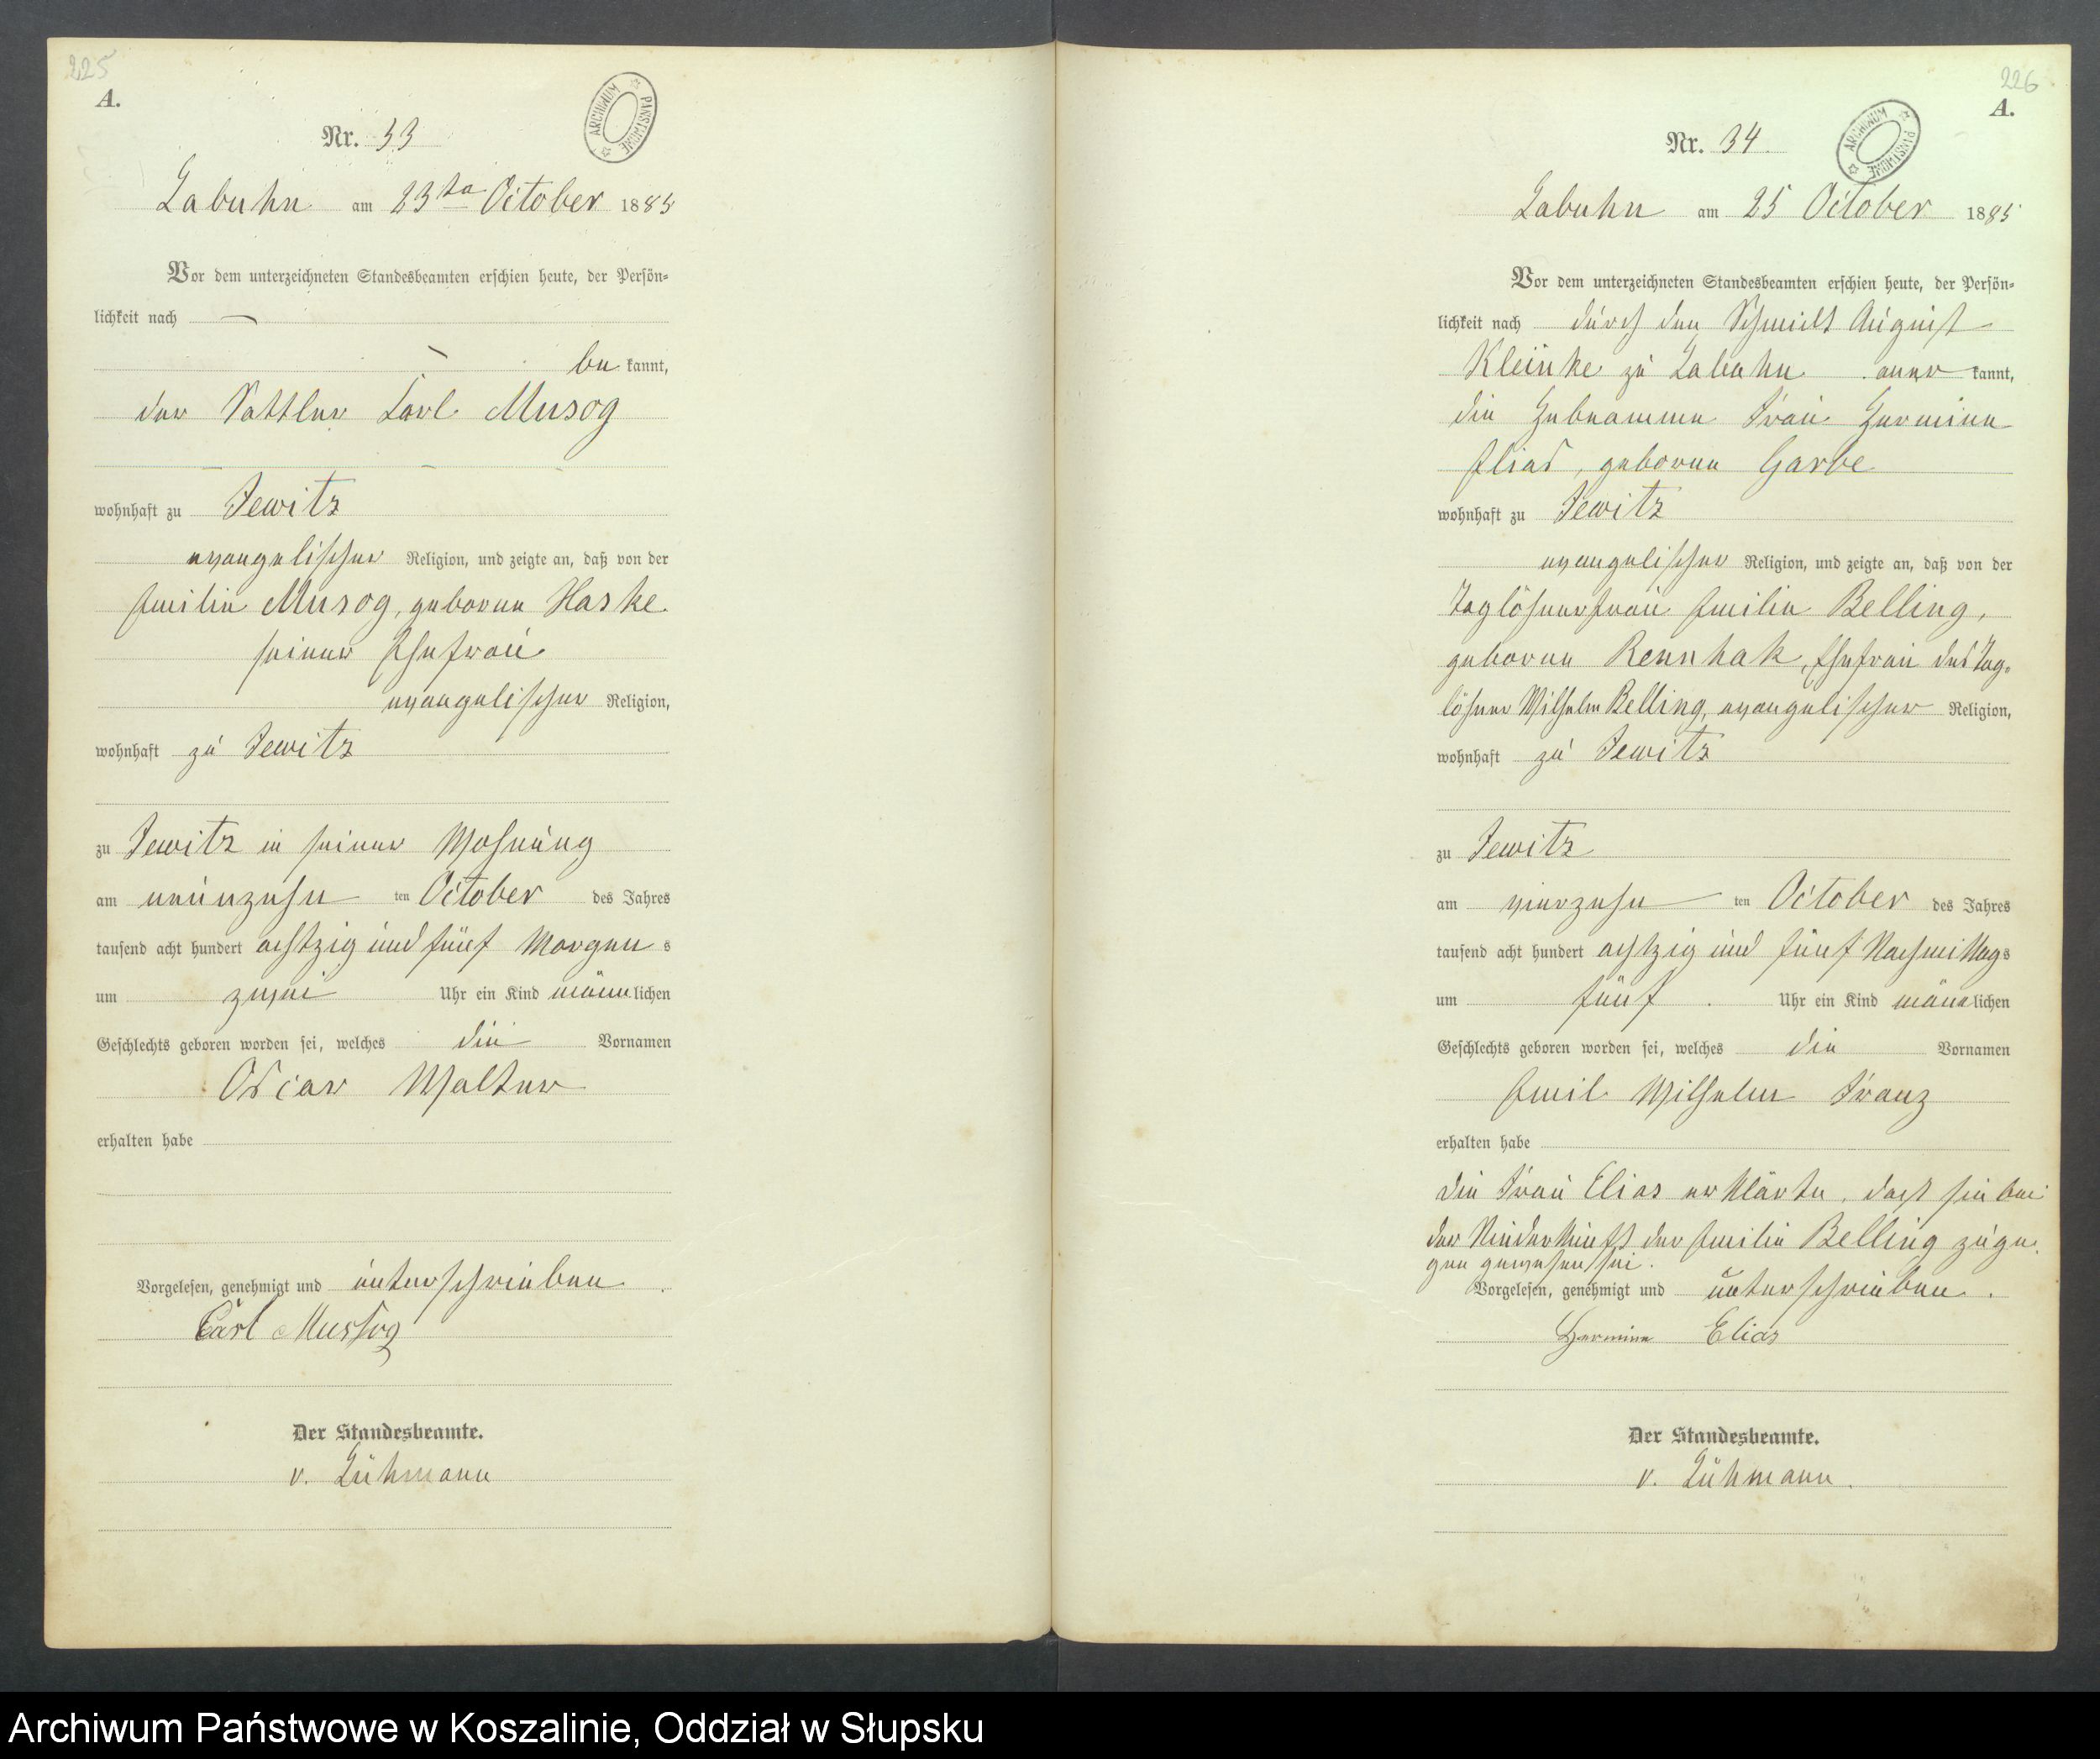 225
A.
ARCHIWUM PAŃSTWOWE
Nr. 33
Labuhn am 23ten October 1885
Vor dem unterzeichneten Standesbeamten erschien heute, der Persön-
lichkeit nach —
— be kannt,
der Sattler Carl Musog
wohnhaft zu Jewitz
evangelischer Religion, und zeigte an, daß von der
Emilie Musog, geborene Haske
seiner Ehefrau
evangelischer Religion,
wohnhaft zu Jewitz
zu Jewitz in seiner Wohnung
am neunzehn ten October des Jahres
tausend acht hundert achtzig und fünf Morgen s
um zwei Uhr ein Kind männlichen
Geschlechts geboren worden sei, welches die Vornamen
Oscar Walter
erhalten habe
Vorgelesen, genehmigt und unterschrieben.
Carl Mussog
Der Standesbeamte.
v. Lühmann
226
A.
ARCHIWUM PAŃSTWOWE
Nr. 34.
Labuhn am 25 October 1885
Vor dem unterzeichneten Standesbeamten erschien heute, der Persön-
lichkeit nach durch den Schmidt August
Kleinke zu Labuhn aner kannt,
die Hebeamme Frau Hermine
Elias, geborene Garbe
wohnhaft zu Jewitz
evangelischer Religion, und zeigte an, daß von der
Taglöhnerfrau Emilie Belling,
geborene Rennhak, Ehefrau des Tag-
löhner Wilhelm Belling, evangelischer Religion,
wohnhaft zu Jewitz
zu Jewitz
am vierzehn ten October des Jahres
tausend acht hundert achtzig und fünf Nachmittags
um fünf Uhr ein Kind männlichen
Geschlechts geboren worden sei, welches die Vornamen
Emil Wilhelm Franz
erhalten habe
die Frau Elias erklärte, daß sie bei
der Niederkunft der Emilie Belling zuge-
gen gewesen sei.
Vorgelesen, genehmigt und unterschrieben.
Hermine Elias
Der Standesbeamte.
v. Lühmann.
Archiwum Państwowe w Koszalinie, Oddział w Słupsku